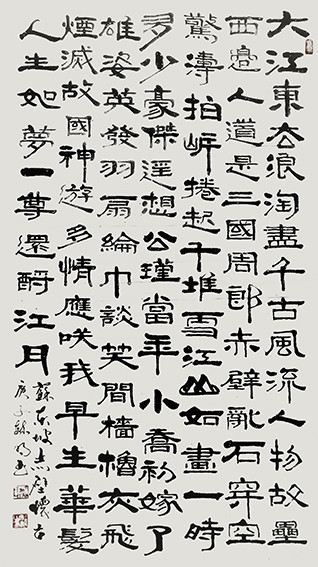 大江東去浪淘盡千古風流人物故壘
西邊人道是三國周郎赤壁亂石穿空
驚濤拍岸捲起千堆雪江山如畫一時
多少豪傑遥想公瑾當年小喬初嫁了
雄姿英發羽扇綸巾談笑間檣櫓灰飛
煙滅故國神遊多情應咲我早生華髮
人生如夢一尊還酹江月
蘇東坡赤壁懷古
庚子